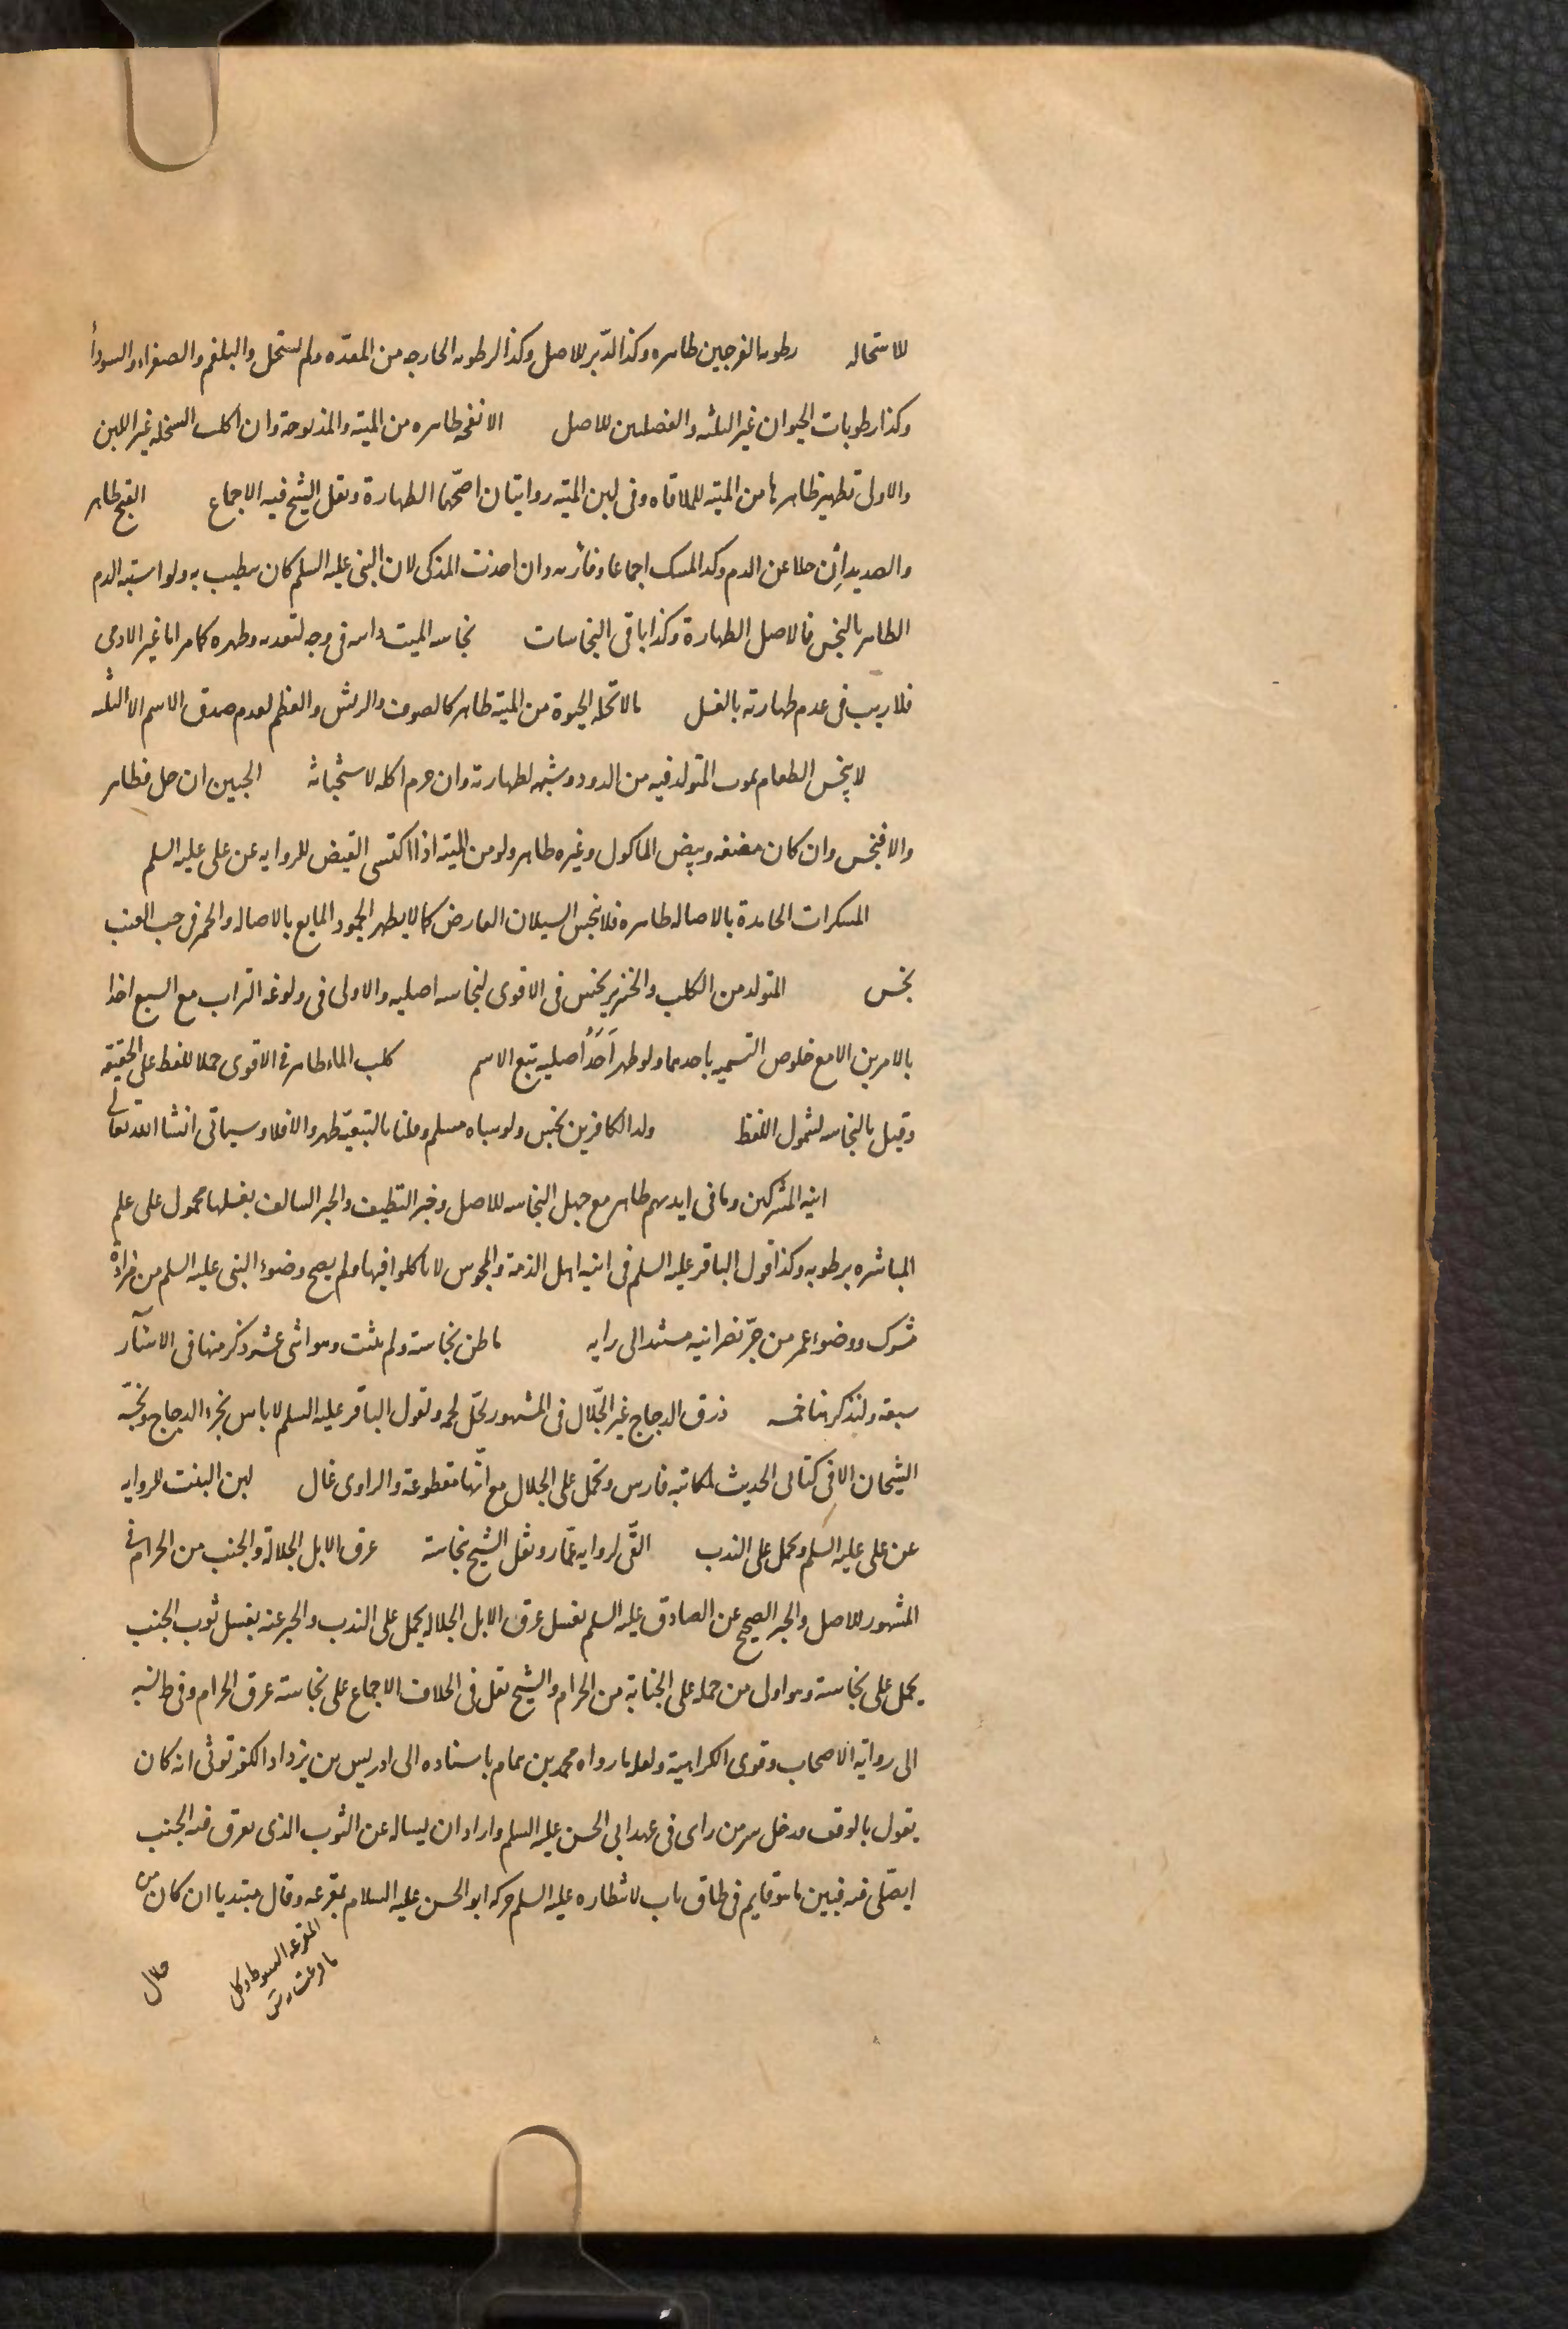 للاستحاله رطوبه الفرجين طاهره وكذا الدبر للاصل وكذا الرطوبه الخارجه من المعدّه ولم تستحل والبلغم والصفراء والسودأ
وكذا رطوبات الحيوان غير الثلثه والفضلتين للاصل الانفحه طاهره من الميته والمذبوحة وان اكلت السخله غير اللبن
والاولى تطهير ظاهرها من الميته للملاقاه وفى لبن الميته روايتان اصحّهما الطهارة ونقل الشيخ فيه الاجماع القيح طاهر
والصديد إن خلا عن الدم وكذا المسك اجماعا وفأرته وان اخذت المذكى لان النبى عليه السلم كان يتطيب به ولو اشتبه الدم
الطاهر بالنجس فالاصل الطهارة وكذا باقى النجاسات نجاسه الميت ذاتيه فى وجه لتعديه وطهره كما مر اما غير الادمى
فلا ريب فى عدم طهارته بالغسل ما لا تحله الحيوة من الميته طاهر كالصوف والريش والعظم لعدم صدق الاسم الا الثلثه
لا ينجس الطعام بموت المتولد فيه من الدود وشبهه لطهارته وان حرم اكله لاستخباثه الجبين ان حل فطاهر
والا فنجس وان كان مضغه وبيض الماكول وغيره طاهر ولو من الميته اذا اكتسى القيض للروايه عن على عليه السلم
المسكرات الجامدة بالاصاله طاهره فلا ينجس السيلان العارض كما لا يطهر الجمود المايع بالاصاله والخمر فى حب العنب
نجس المتولد من الكلب والخنزير نجس فى الاقوى لنجاسه اصليه والاولى فى ولوغه التراب مع السبع اخذا
بالامرين الا مع خلوص التسميه باحدهما ولو طهر اَحَدُ اصليه تبع الاسم كلب الماء طاهر فى الاقوى حملا للفظ على الحقيقه
وقيل بالنجاسه لشمول اللفظ ولد الكافرين نجس ولو سباه مسلم وقلنا بالتبعيّه طهر والا فلا وسياتى انشا الله تعالى
انيه المشركين وما فى ايديهم طاهر مع جهل النجاسه للاصل وخبر التنظيف والخبر السالف بغسلها محمول على علم
المباشره برطوبه وكذا قول الباقر عليه السلم فى انيه اهل الذمة والمجوس لا تاكلوا فيها ولم يصح وضوء النبى عليه السلم من مزادة
مشرك ووضوء عمر من جرّ نصرانيه مستند الى رايه ما ظن نجاسته ولم يثبت وهو اثنى عشر وذكر منها فى الاسآر
سبعه ولنذكر هنا خمسه ذرق الدجاج غير الجلّال فى المشهور لحلّ لحمه ولقول الباقر عليه السلم لا باس بخرء الدجاج ونجّسه
الشيخان الا فى كتابى الحديث لمكاتبه فارس وتحمل على الجلال مع انّها مقطوعة والراوى غال لبن البنت للروايه
عن على عليه السلم ويحمل على الندب القى لروايه عمّار ونقل الشيخ نجاسته عرق الابل الجلالة والجنب من الحرام فى
المشهور للاصل والخبر الصحيح عن الصادق عليه السلم بغسل عرق الابل الجلاله يحمل على الندب والخبر عنه بغسل ثوب الجنب
يحمل على نجاسته وهو اولى من حمله على الجنابة من الحرام والشيخ نقل فى الخلاف الاجماع على نجاسته عرق الحرام وفى ط نسبه
الى رواية الاصحاب وقوى الكراهية ولعله ما رواه محمد بن همام باسناده الى ادريس بن يزداد الكفرتوثى انه كان
يقول بالوقف فدخل سر من راى فى عهد ابى الحسن عليه السلم واراد ان يساله عن الثوب الذى يعرق فيه الجنب
ايصلّى فيه فبين ما هو قايم فى طاق باب لانتظاره عليه السلم حركه ابو الحسن عليه السلام بمقرعه وقال مبتديا ان كان من
حلال
المقرعه السوط وكل
ما قرعت به